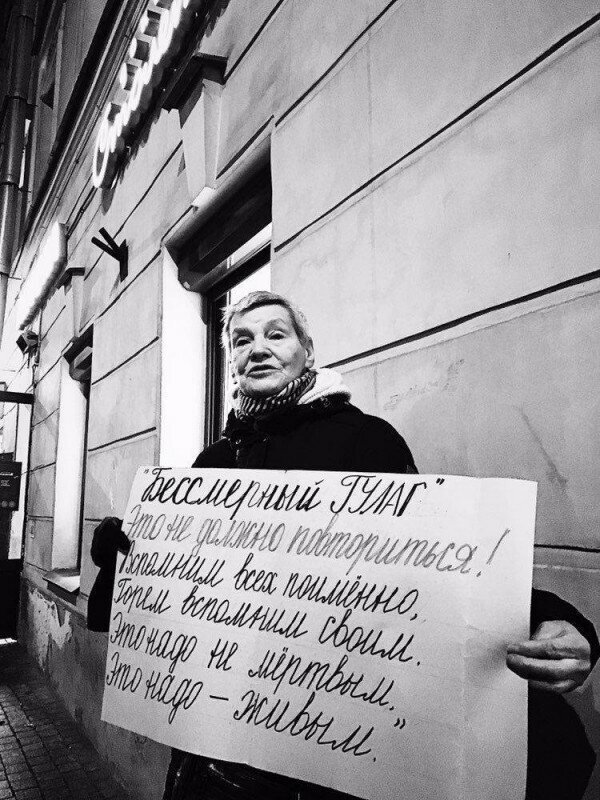 "Бессмерный ГУЛАГ"
Это не должно повториться!
Вспомним всех поимённо,
Горем вспомним своим.
Это надо не мёртвым.
Это надо – живым."